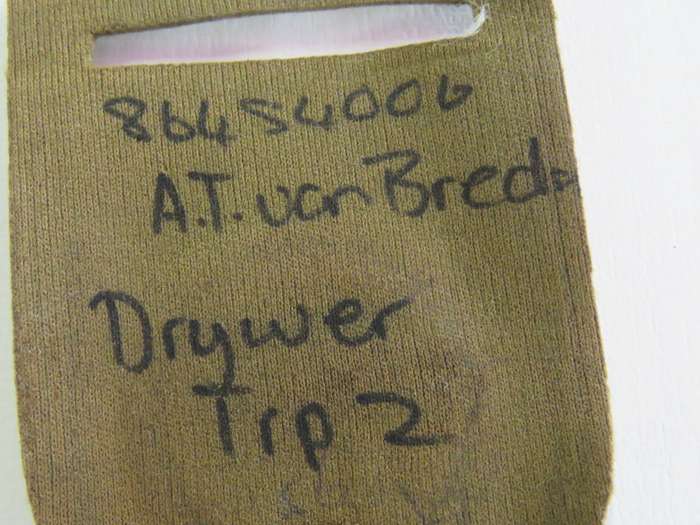 86454006
A.T. van Breda
Drywer
Trp 2